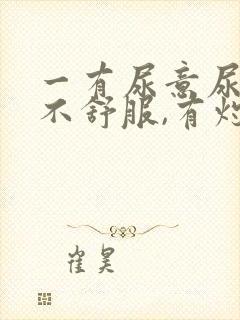 一有尿意尿
不舒服,有灼
崔昊